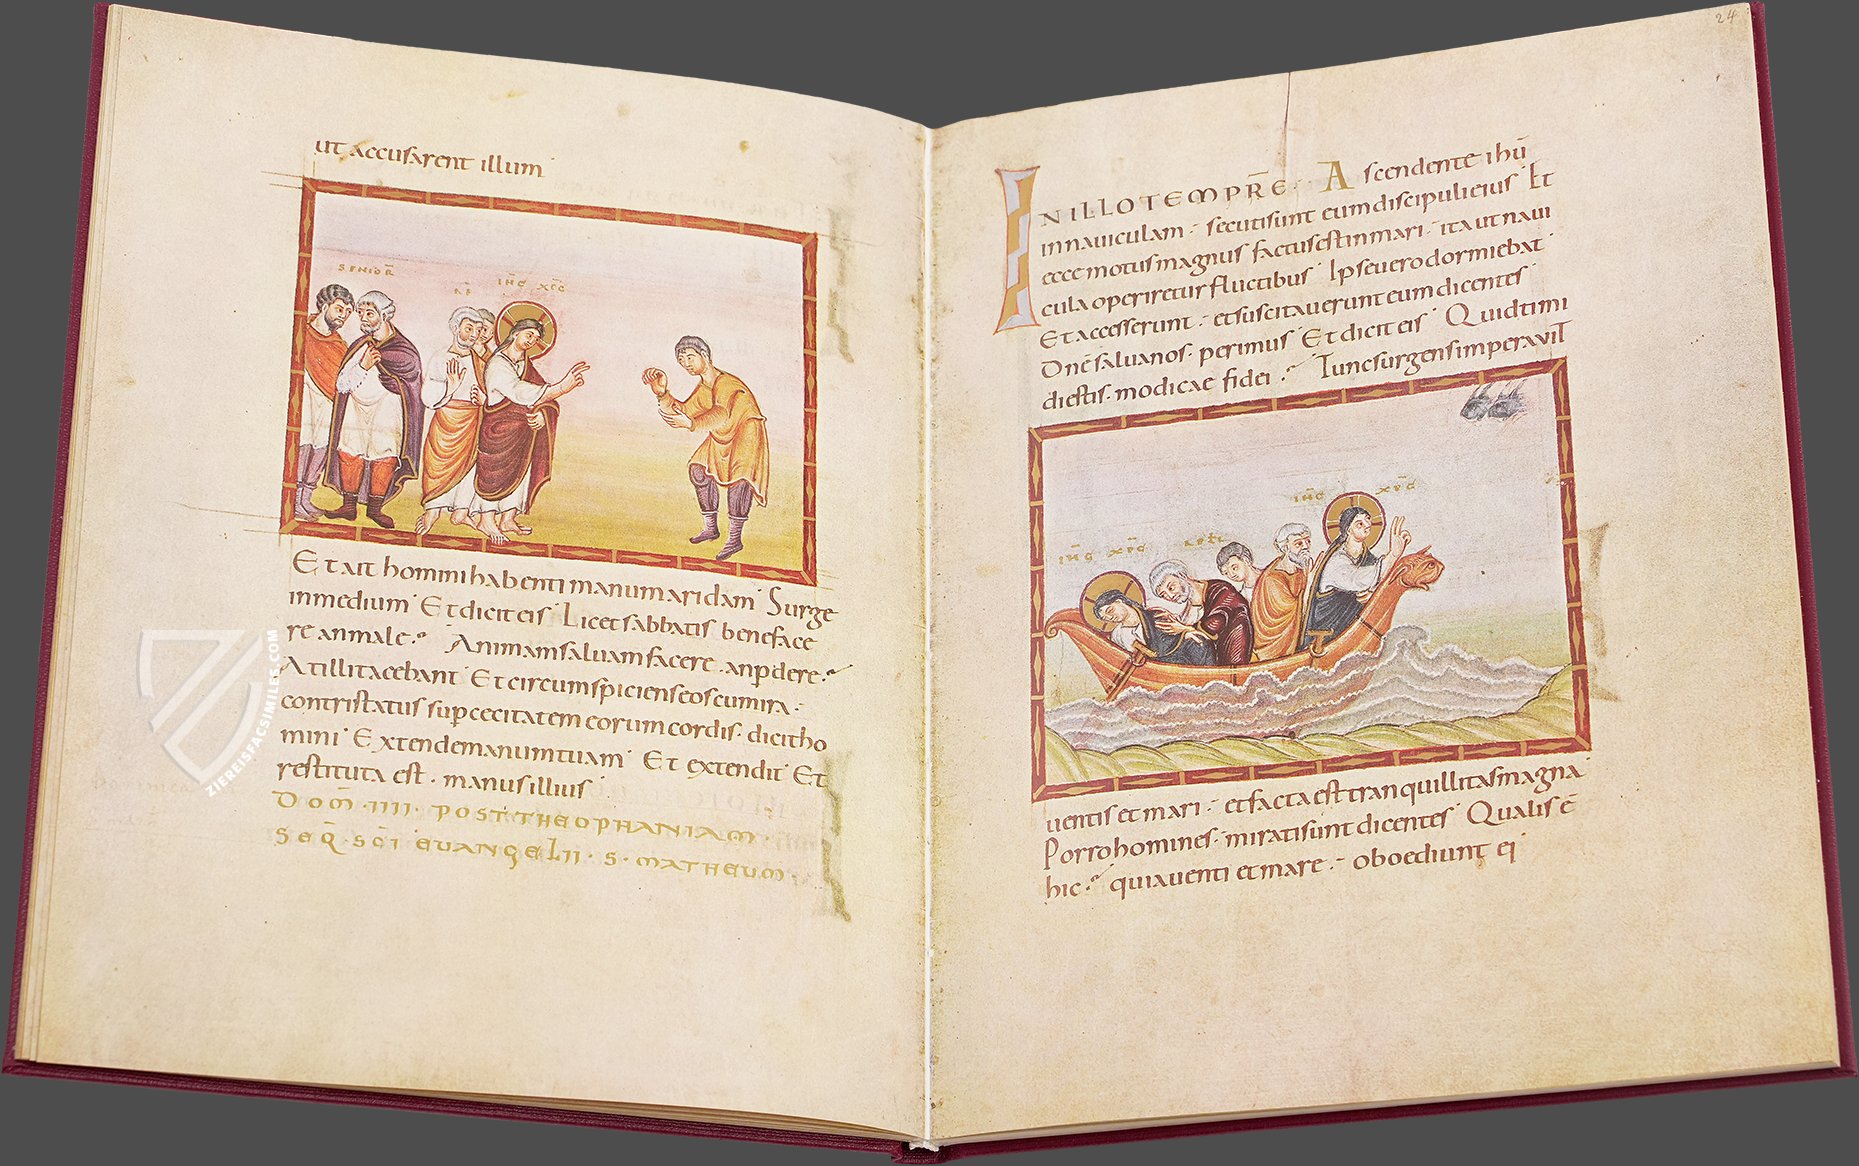 ut accusarent illum
SENIOR̄
AP̄
IH̄C XP̄C
Et ait homini habenti manum aridam Surge
in medium Et dicit eis Licet sabbatis beneface
re an male Animam salvam facere an pdere
At illi tacebant Et circumspiciens eos cum ira
contristatus sup cecitatem eorum cordis dicit ho
mini Extende manum tuam Et extendit Et
restituta est manus illius
DOM̄ IIII POST THEOPHANIAM
SEQ̄ SC̄I EVANGELII S MATHEUM
ZIEREISFACSIMILES.COM
24
IN ILLO TEMPR̄E Ascendente ihū
in naviculam secuti sunt eum discipuli eius Et
ecce motus magnus factus est in mari ita ut navi
cula operiretur fluctibus Ipse vero dormiebat
Et accesserunt et suscitaverunt eum dicentes
Dnē salva nos perimus Et dicit eis Quid timi
di estis modicae fidei Tunc surgens imperavit
IH̄C XP̄C
IH̄C XP̄C
ventis et mari et facta est tranquillitas magna
Porro homines mirati sunt dicentes Qualis ē
hic quia venti et mare oboediunt ei